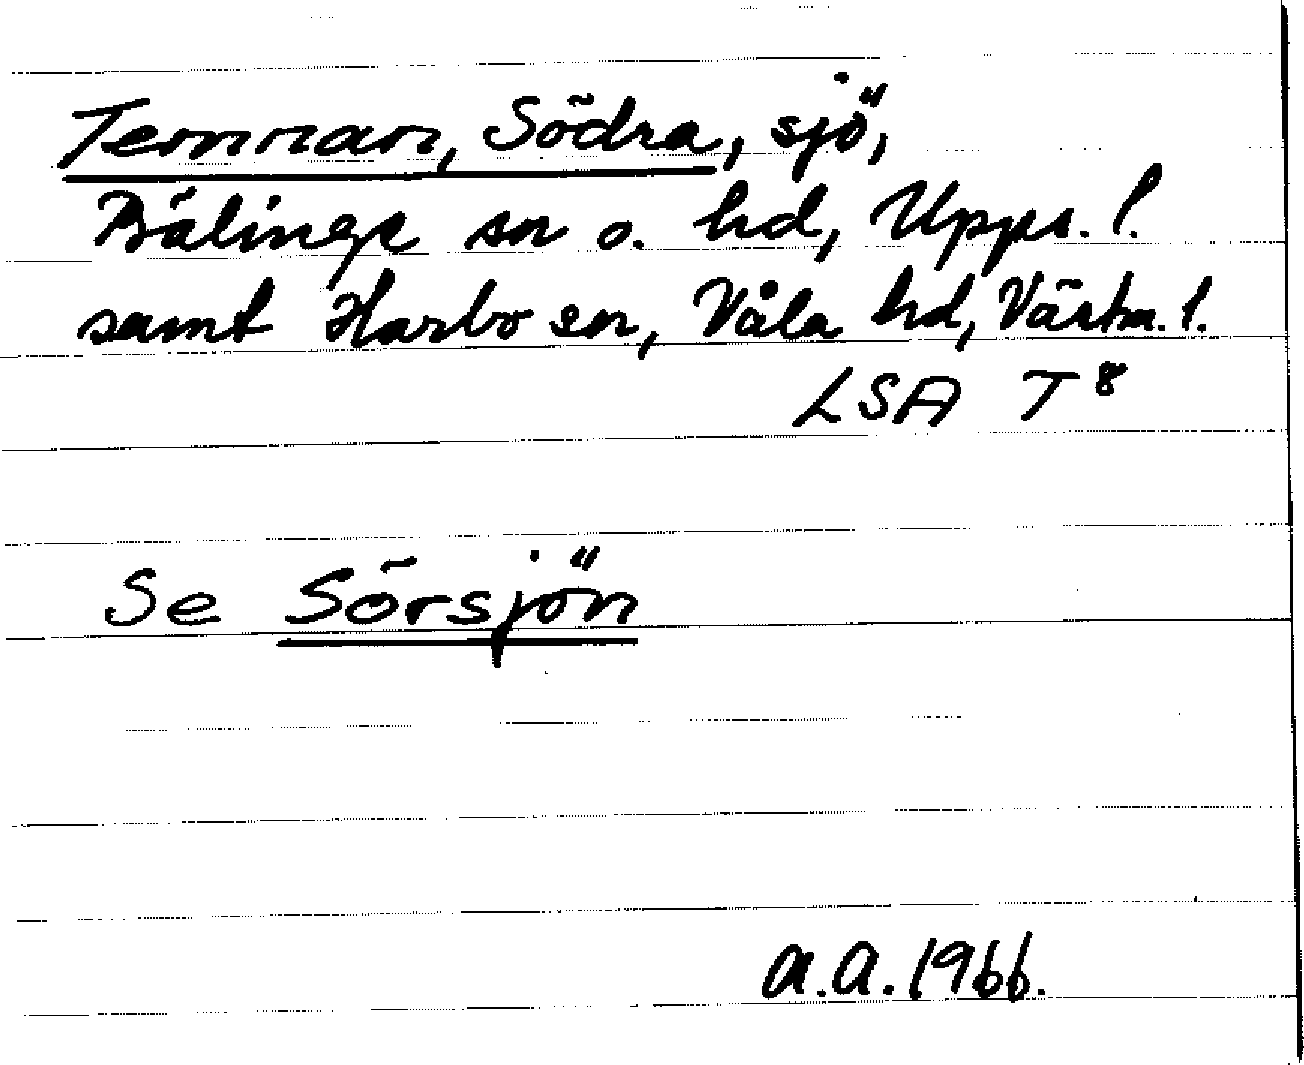 Temnaren, Södra, sjö,
Bälinge sn o. hd, Upps. l.
samt Harbo sn, Våla hd, Västm. l.
LSA T 8
Se Sörsjön
A.A. 1966.